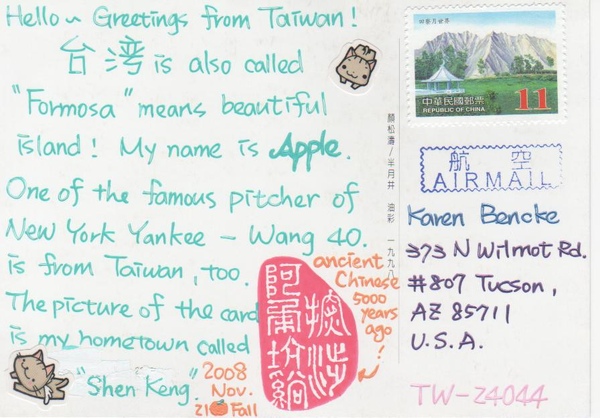 Hello ~ Greetings from Taiwan!
台湾 is also called
"Formosa" means beautiful
island! My name is Apple.
One of the famous pitcher of
New York Yankee - Wang 40.
is from Taiwan, too.
The picture of the card
is my hometown called
"Shen Keng."
2008
Nov.
21 Fall
ancient
Chinese
5000
years
ago!
顏松濤/半月井 油彩 一九九八
中華民國郵票
REPUBLIC OF CHINA
11
航空
AIRMAIL
Karen Bencke
373 N Wilmot Rd.
#807 Tucson,
AZ 85711
U.S.A.
TW-24044